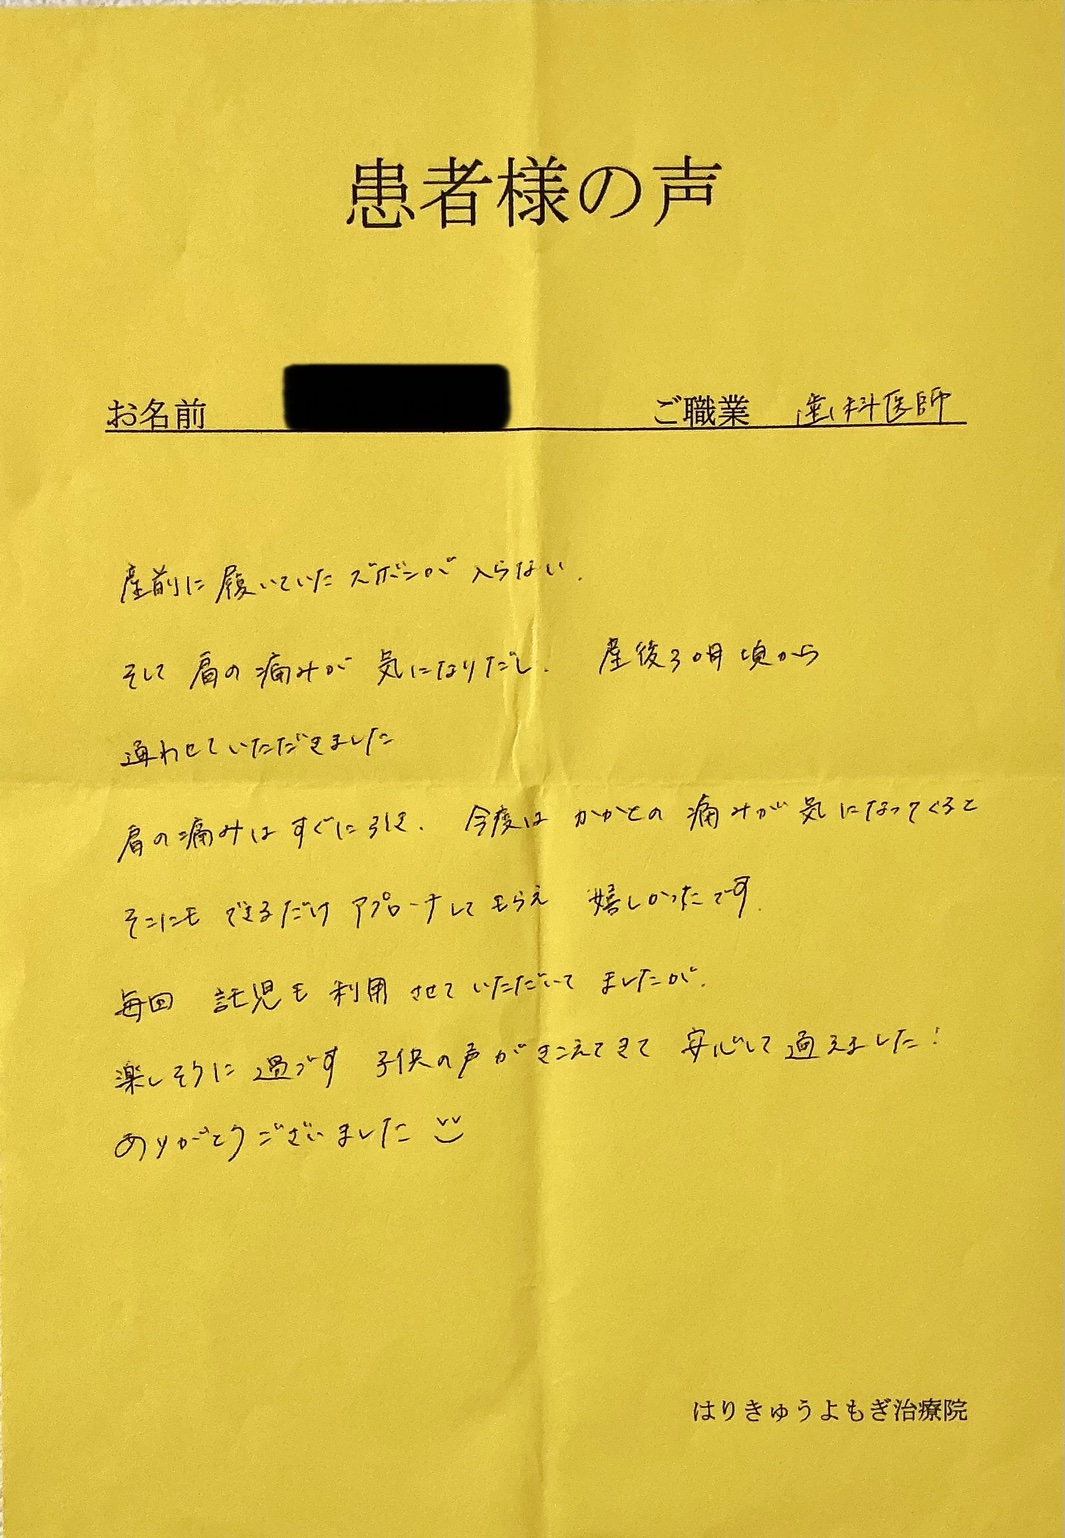 患者様の声
お名前 ご職業 歯科医師
産前に履いていたズボンが入らない.
そして肩の痛みが気になりだし. 産後3ヶ月頃から
通わせていただきました
肩の痛みはすぐに引き. 今度はかかとの痛みが気になってくると
そこにもできるだけアプローチしてもらえ 嬉しかったです.
毎回 託児も利用させていただいてましたが.
楽しそうに過ごす子供の声がきこえてきて安心して通えました!
ありがとうございました
はりきゅうよもぎ治療院